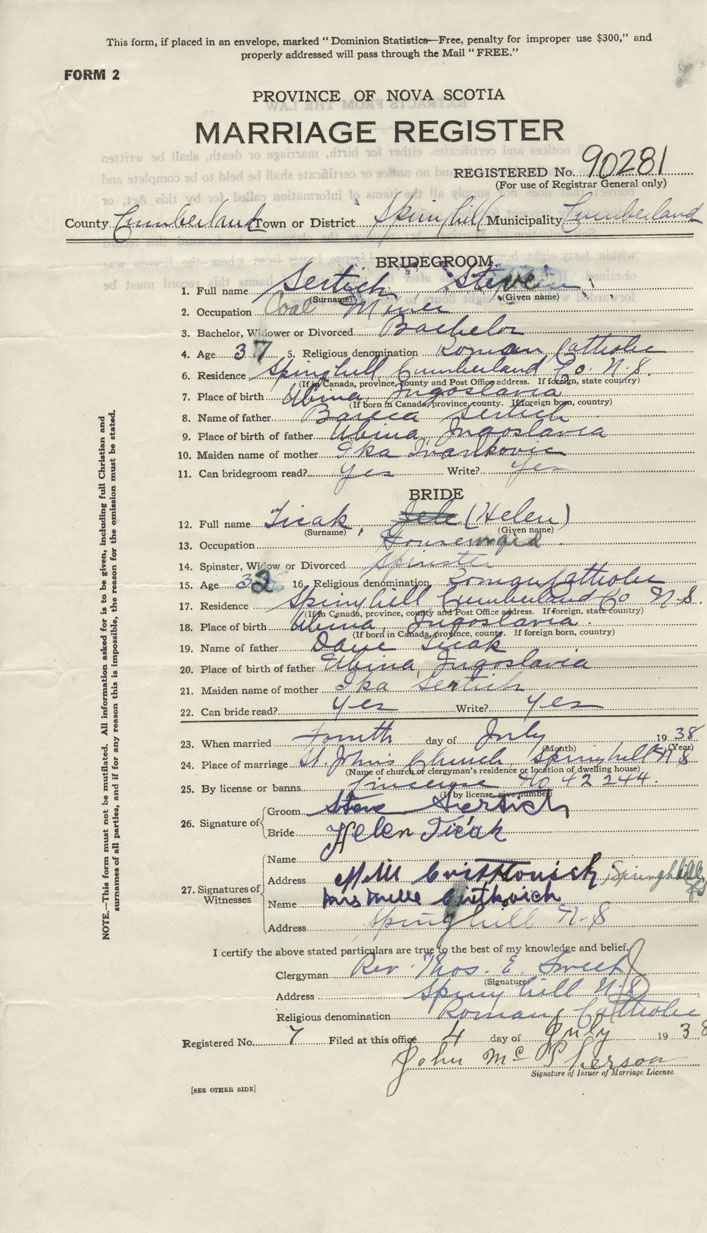 This form, if placed in an envelope, marked "Dominion Statistics—Free, penalty for improper use $300," and
properly addressed will pass through the Mail "FREE."
FORM 2
PROVINCE OF NOVA SCOTIA
MARRIAGE REGISTER
REGISTERED No. 90281
(For use of Registrar General only)
County Cumberland Town or District Springhill Municipality Cumberland
BRIDEGROOM
1. Full name Sertich Steve
(Surname) (Given name)
2. Occupation Coal Miner
3. Bachelor, Widower or Divorced Bachelor
4. Age 37 5. Religious denomination Roman Catholic
6. Residence Springhill Cumberland Co. N.S.
(If in Canada, province, county and Post Office address. If foreign, state country)
7. Place of birth Ubina, Jugoslavia
(If born in Canada, province, county. If foreign born, country)
8. Name of father Sertich
9. Place of birth of father Ubina, Jugoslavia
10. Maiden name of mother Ika Ivankovic
11. Can bridegroom read? Yes Write? Yes
BRIDE
12. Full name Ticak, Jele (Helen)
(Surname) (Given name)
13. Occupation Housemaid
14. Spinster, Widow or Divorced Spinster
15. Age 32 16. Religious denomination Roman Catholic
17. Residence Springhill Cumberland Co N.S.
(If in Canada, province, county and Post Office address. If foreign, state country)
18. Place of birth Ubina, Jugoslavia.
(If born in Canada, province, county. If foreign born, country)
19. Name of father Ticak
20. Place of birth of father Ubina, Jugoslavia
21. Maiden name of mother Ika Sertich
22. Can bride read? Yes Write? Yes
23. When married Fourth day of July 1938
(Month) (Year)
24. Place of marriage St. John's Church, Springhill N.S
(Name of church or clergyman's residence or location of dwelling house)
25. By license or banns License No 42244.
(If by license, give number)
26. Signature of Groom Steve Sertich
Bride Helen Ticak
27. Signatures of Witnesses
Name
Address Springhill NS
Name Mrs
Address Springhill N-S
I certify the above stated particulars are true to the best of my knowledge and belief.
Clergyman Rev. Thos. E.
(Signature)
Address Springhill N.S
Religious denomination Roman Catholic
Registered No. 7 Filed at this office 4 day of July 1938
John McPherson
Signature of Issuer of Marriage License.
[SEE OTHER SIDE]
NOTE.—This form must not be mutilated. All information asked for is to be given, including full Christian and
surnames of all parties, and if for any reason this is impossible, the reason for the omission must be stated.